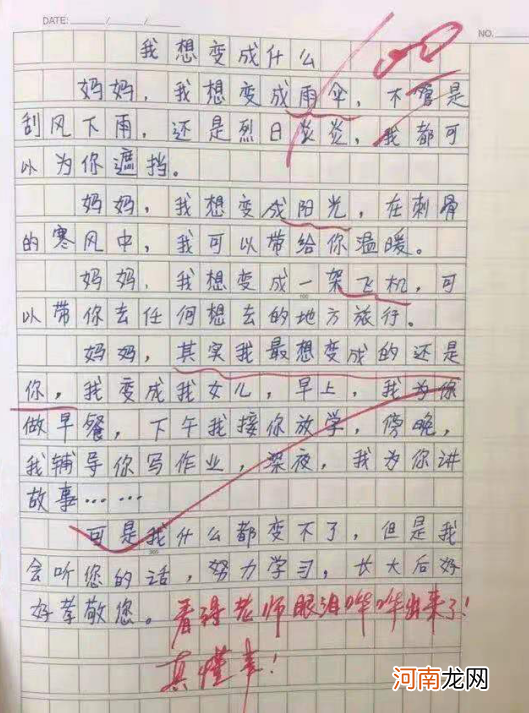 DATE: / /
NO.
我想变成什么
妈妈，我想变成雨伞，不管是
刮风下雨，还是烈日炎炎，我都可
以为你遮挡。
妈妈，我想变成阳光，在刺骨
的寒风中，我可以带给你温暖。
妈妈，我想变成一架飞机，可
以带你去任何想去的地方旅行。
妈妈，其实我最想变成的还是
你，我变成我女儿，早上，我为你
做早餐，下午我接你放学，傍晚，
我辅导你写作业，深夜，我为你讲
故事……
可是我什么都变不了，但是我
会听您的话，努力学习，长大后好
好孝敬您。看得老师眼泪哗哗出来了！
真懂事！
河南龙网